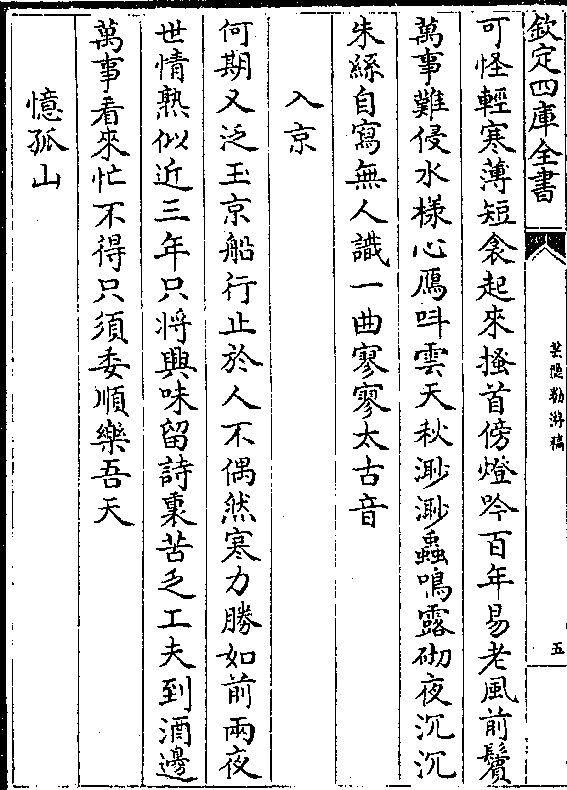 欽定四庫全書
芸隱勌游稿
五
可怪輕寒薄短衾起來搔首傍燈吟百年易老風前鬢
萬事難侵水樣心鴈呌雲天秋渺渺蟲鳴露砌夜沉沉
朱絲自寫無人識一曲寥寥太古音
入京
何期又泛玉京船行止於人不偶然寒力勝如前兩夜
世情熟似近三年只將興味留詩裏苦乏工夫到酒邊
萬事看來忙不得只須委順樂吾天
憶孤山